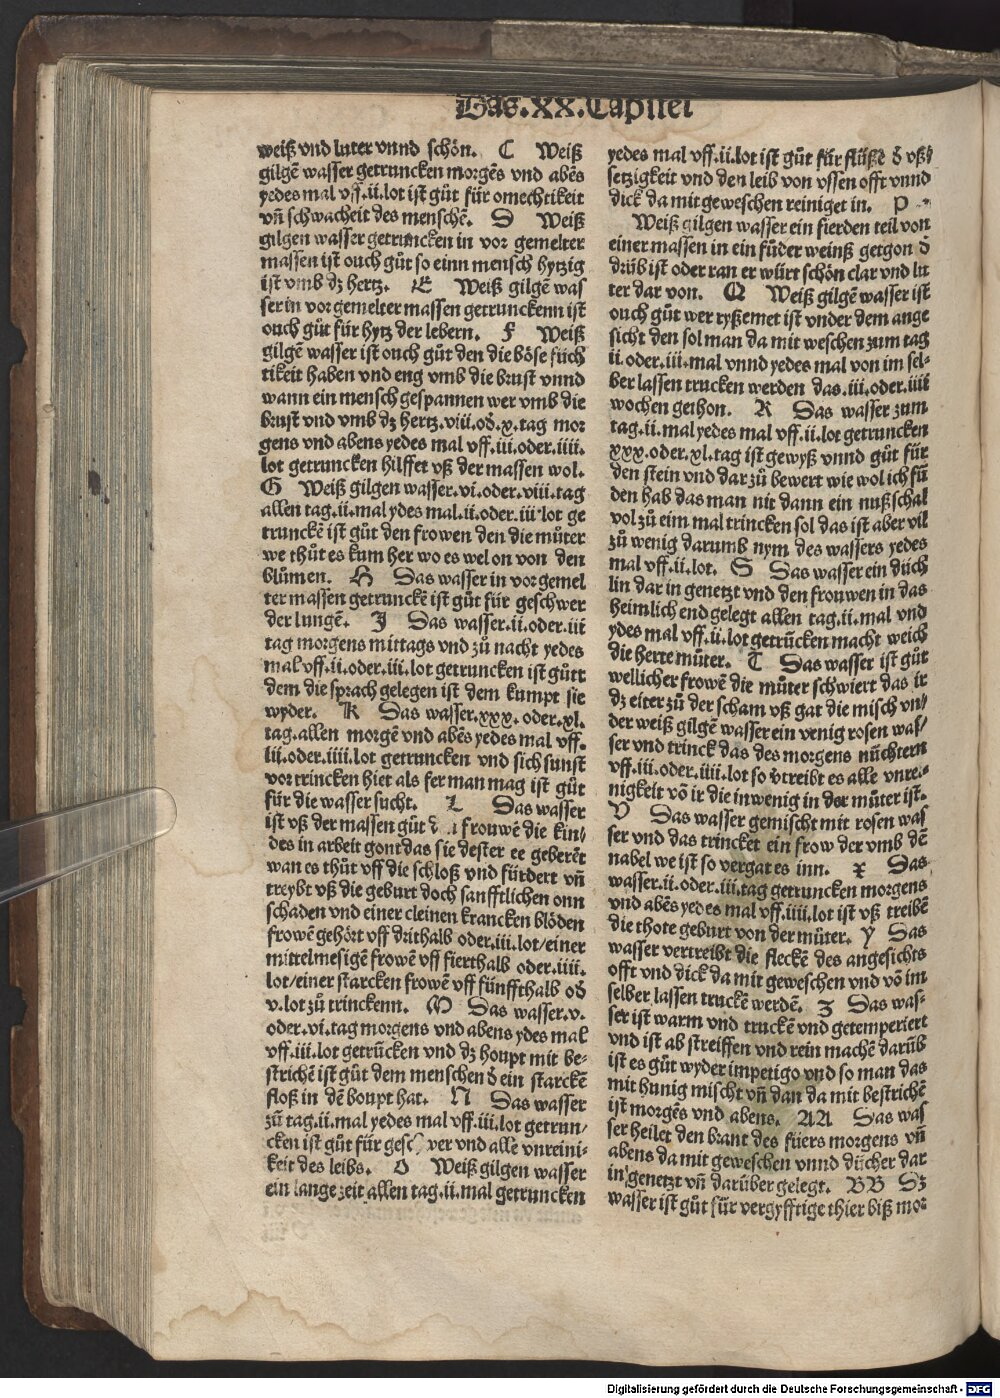 Das.XX.Capitel
weiß vnd luter vnnd schön. C Weiß
gilgē wasser getruncken morgēs vnd abēs
yedes mal vff.ii.lot ist gůt für omechtikeit
vñ schwacheit des menschē. D Weiß
gilgen wasser getruncken in vor gemelter
massen ist ouch gůt so einn mensch hytzig
ist vmb dz hertz. E Weiß gilgē was
ser in vor gemelter massen getrunckenn ist
ouch gůt für hytz der lebern. F Weiß
gilgē wasser ist ouch gůt den die böse füch
tikeit haben vnd eng vmb die brust vnnd
wann ein mensch gespannen wer vmb die
brust vnd vmb dz hertz.viii.oď.x.tag mor
gens vnd abens yedes mal vff.iii.oder.iiii.
lot getruncken hilffet vß der massen wol.
G Weiß gilgen wasser.vi.oder.viii.tag
allen tag.ii.mal ydes mal.ii.oder.iii lot ge
trunckē ist gůt den frowen den die můter
we thůt es kum her wo es wel on von den
blůmen. H Das wasser in vor gemel
ter massen getrunckē ist gůt für geschwer
der lungē. J Das wasser.ii.oder.iii
tag morgens mittags vnd zů nacht yedes
mal vff.ii.oder.iii.lot getruncken ist gůtt
dem die sprach gelegen ist dem kumpt sie
wyder. K Das wasser.xxx.oder.xl.
tag.allen morgē vnd abēs yedes mal vff.
iii.oder.iiii.lot getruncken vnd sich sunst
vor trincken hiet als fer man mag ist gůt
für die wasser sucht. L Das wasser
ist vß der massen gůt frouwē die kin/
des in arbeit gont das sie dester ee geberēt
wan es thůt vff die schloß vnd fürdert vñ
treybt vß die geburt doch sanfftlichen onn
schaden vnd einer cleinen krancken blöden
frowē gehört vff drithalb oder.iii.lot/einer
mittelmesigē frowē vff fierthalb oder.iiii.
lot/einer starcken frowē vff fünffthalb oď
v.lot zů trinckenn. M Das wasser.v.
oder.vi.tag morgens vnd abens ydes mal
vff.iii.lot getrūcken vnd dz houpt mit be-
strichē ist gůt dem menschen ď ein starckē
floß in dē houpt hat. N Das wasser
zů tag.ii.mal yedes mal vff.iii.lot getrun/
cken ist gůt für geschwer vnd alle vnreini-
keit des leibs. O Weiß gilgen wasser
ein lange zeit allen tag.ii.mal getruncken
yedes mal vff.ii.lot ist gůt für flüße ď vß/
setzigkeit vnd den leib von vssen offt vnnd
dick da mit geweschen reiniget in. P
Weiß gilgen wasser ein fierden teil von
einer massen in ein fůder weinß getgon ď
drüb ist oder ran er würt schön clar vnd lu
ter dar von. Q Weiß gilgē wasser ist
ouch gůt wer ryßemet ist vnder dem ange
sicht den sol man da mit weschen zum tag
ii.oder.iii.mal vnnd yedes mal von im sel-
ber lassen trucken werden das.iii.oder.iiii
wochen gethon. R Das wasser zum
tag.ii.mal yedes mal vff.ii.lot getruncken
xxx.oder.xl.tag ist gewyß vnnd gůt für
den stein vnd dar zů bewert wie wol ich fū
den hab das man nit dann ein nußschal
vol zů eim mal trincken sol das ist aber vil
zů wenig darumb nym des wassers yedes
mal vff.ii.lot. S Das wasser ein düch
lin dar in genetzt vnd den frouwen in das
heimlich end gelegt allen tag.ii.mal vnd
ydes mal vff.ii.lot getrūcken macht weich
die herte můter. T Das wasser ist gůt
wellicher frowē die můter schwiert das ir
dz eiter zů der scham vß gat die misch vn/
der weiß gilgē wasser ein venig rosen was/
ser vnd trinck das des morgens nüchtern
vff.iii.oder.iiii.lot so v̄treibt es alle vnre-
nigkeit vō ir die inwenig in der můter ist.
V Das wasser gemischt mit rosen was
ser vnd das trincket ein frow der vmb dē
nabel we ist so vergat es inn. X Das
wasser.ii.oder.iii.tag getruncken morgens
vnd abēs yedes mal vff.iiii.lot ist vß treibē
die thote geburt von der můter. Y Das
wasser vertreibt die fleckē des angesichts
offt vnd dick da mit geweschen vnd vō im
selber lassen truckē werdē. Z Das was-
ser ist warm vnd truckē vnd getemperiert
vnd ist ab streiffen vnd rein machē darūb
ist es gůt wyder impetigo vnd so man das
mit hunig mischt vñ dan da mit bestrichē
ist morgēs vnd abens. AA Das was
ser heilet den brant des füers morgens vñ
abens da mit geweschen vnnd dücher dar
in genetzt vñ darüber gelegt. BB Dz
wasser ist gůt für vergyfftige thier biß mor
Digitalisierung gefördert durch die Deutsche Forschungsgemeinschaft - DFG